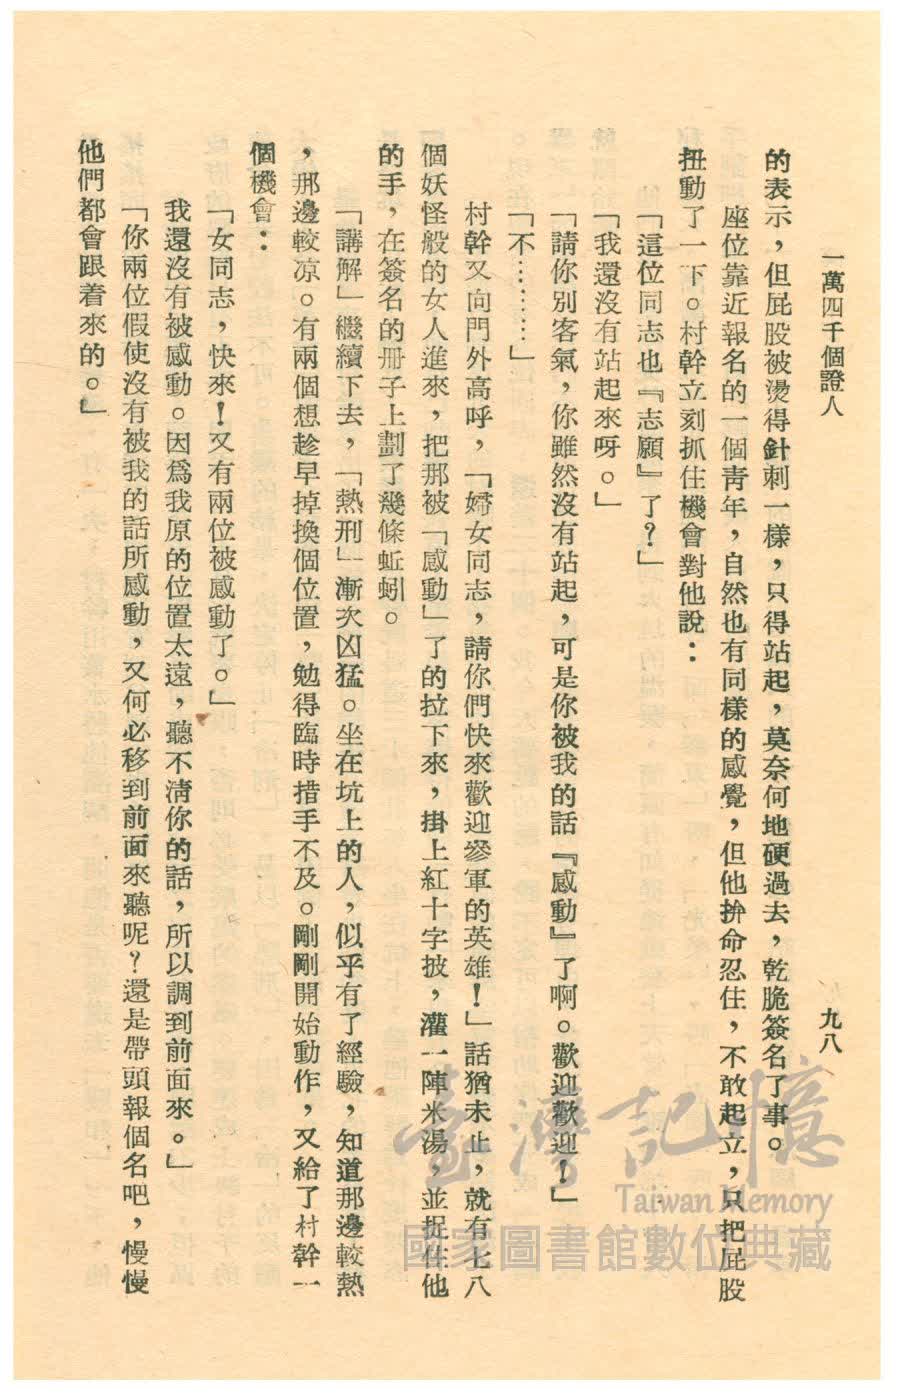 一萬四千個證人
九八
的表示，但屁股被燙得針刺一樣，只得站起，莫奈何地硬過去，乾脆簽名了事。
座位靠近報名的一個靑年，自然也有同樣的感覺，但他拚命忍住，不敢起立，只把屁股
扭動了一下。村幹立刻抓住機會對他說：
「這位同志也『志願』了？」
「我還沒有站起來呀。」
「請你別客氣，你雖然沒有站起，可是你被我的話『感動』了啊。歡迎歡迎！」
「不………」
村幹又向門外高呼，「婦女同志，請你們快來歡迎參軍的英雄！」話猶未止，就有七八
個妖怪般的女人進來，把那被「感動」了的拉下來，掛上紅十字披，灌一陣米湯，並捉住他
的手，在簽名的冊子上劃了幾條蚯蚓。
「講解」繼續下去，「熱刑」漸次凶猛。坐在坑上的人，似乎有了經驗，知道那邊較熱
，那邊較凉。有兩個想趁早掉換個位置，勉得臨時措手不及。剛剛開始動作，又給了村幹一
個機會：
「女同志，快來！又有兩位被感動了。」
我還沒有被感動。因爲我原的位置太遠，聽不淸你的話，所以調到前面來。」
「你兩位假使沒有被我的話所感動，又何必移到前面來聽呢？還是帶頭報個名吧，慢慢
他們都會跟着來的。」
臺灣記憶
Taiwan Memory
國家圖書館數位典藏